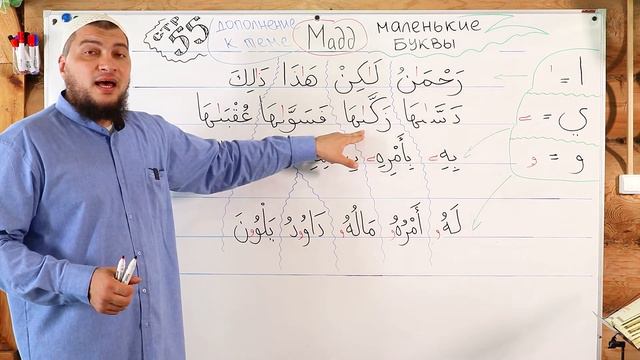 стр 55
дополнение
к теме
Мадд
маленькие
буквы
رَحْمَٰنُ لَٰكِنْ هَٰذَا ذَٰلِكَ
دَسَّىٰهَا زَكَّىٰهَا فَسَوَّىٰهَا عُقْبَىٰهَا
بِهِۦ بِأَمْرِهِۦ
لَهُۥ أَمْرُهُۥ مَالُهُۥ دَاوُۥدُ يَلْوُۥنَ
ا = ٰ
ي = ے
و = و